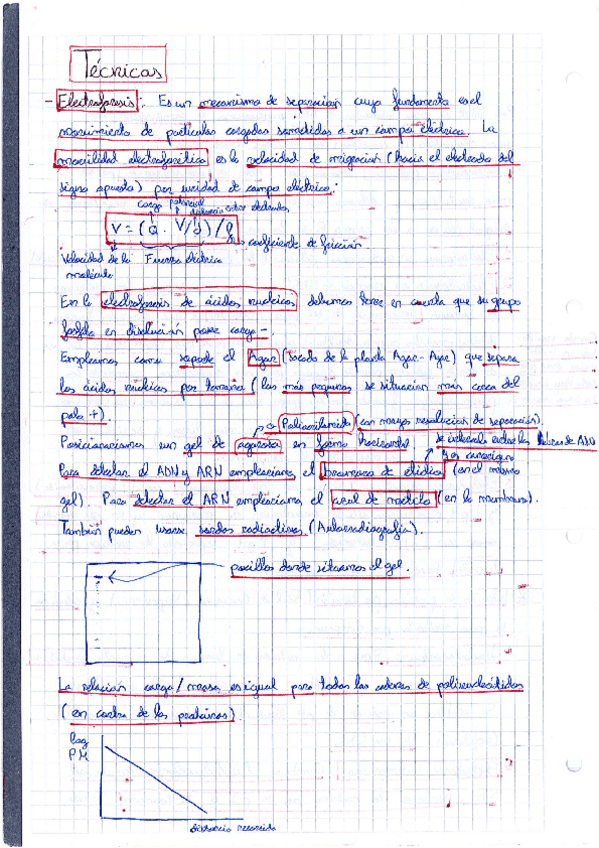 Técnicas
- Electroforesis: Es un mecanismo de separación cuyo fundamento es el
movimiento de partículas cargadas sometidas a un campo eléctrico. La
movilidad electroforética es la velocidad de migración (hacia el electrodo del
signo opuesto) por unidad de campo eléctrico:
carga potencial
distancia entre electrodos
V = (Q . V/d) / f
coeficiente de fricción
Velocidad de la Fuerza eléctrica
molécula
En la electroforesis de ácidos nucleicos debemos tener en cuenta que su grupo
fosfato en disolución posee carga -.
Empleamos como soporte el Agar (sacado de la planta Agar-Agar) que separa
los ácidos nucleicos por tamaño (los más pequeños se situarían más cerca del
polo +).
Poliacrilamida (con mayor resolución de separación).
Posicionaremos un gel de agarosa en forma horizontal
se intercala entre las hebras de ADN
y es cancerígeno
Para detectar el ADN y ARN empleamos el bromuro de etidio (en el mismo
gel). Para detectar el ARN empleamos el azul de metileno (en la membrana).
También pueden usarse sondas radiactivas (Autorradiografía).
pocillos donde situamos el gel.
La relación carga/masa es igual para todas las cadenas de polinucleótidos
(en contra de las proteínas).
log
PM
distancia recorrida